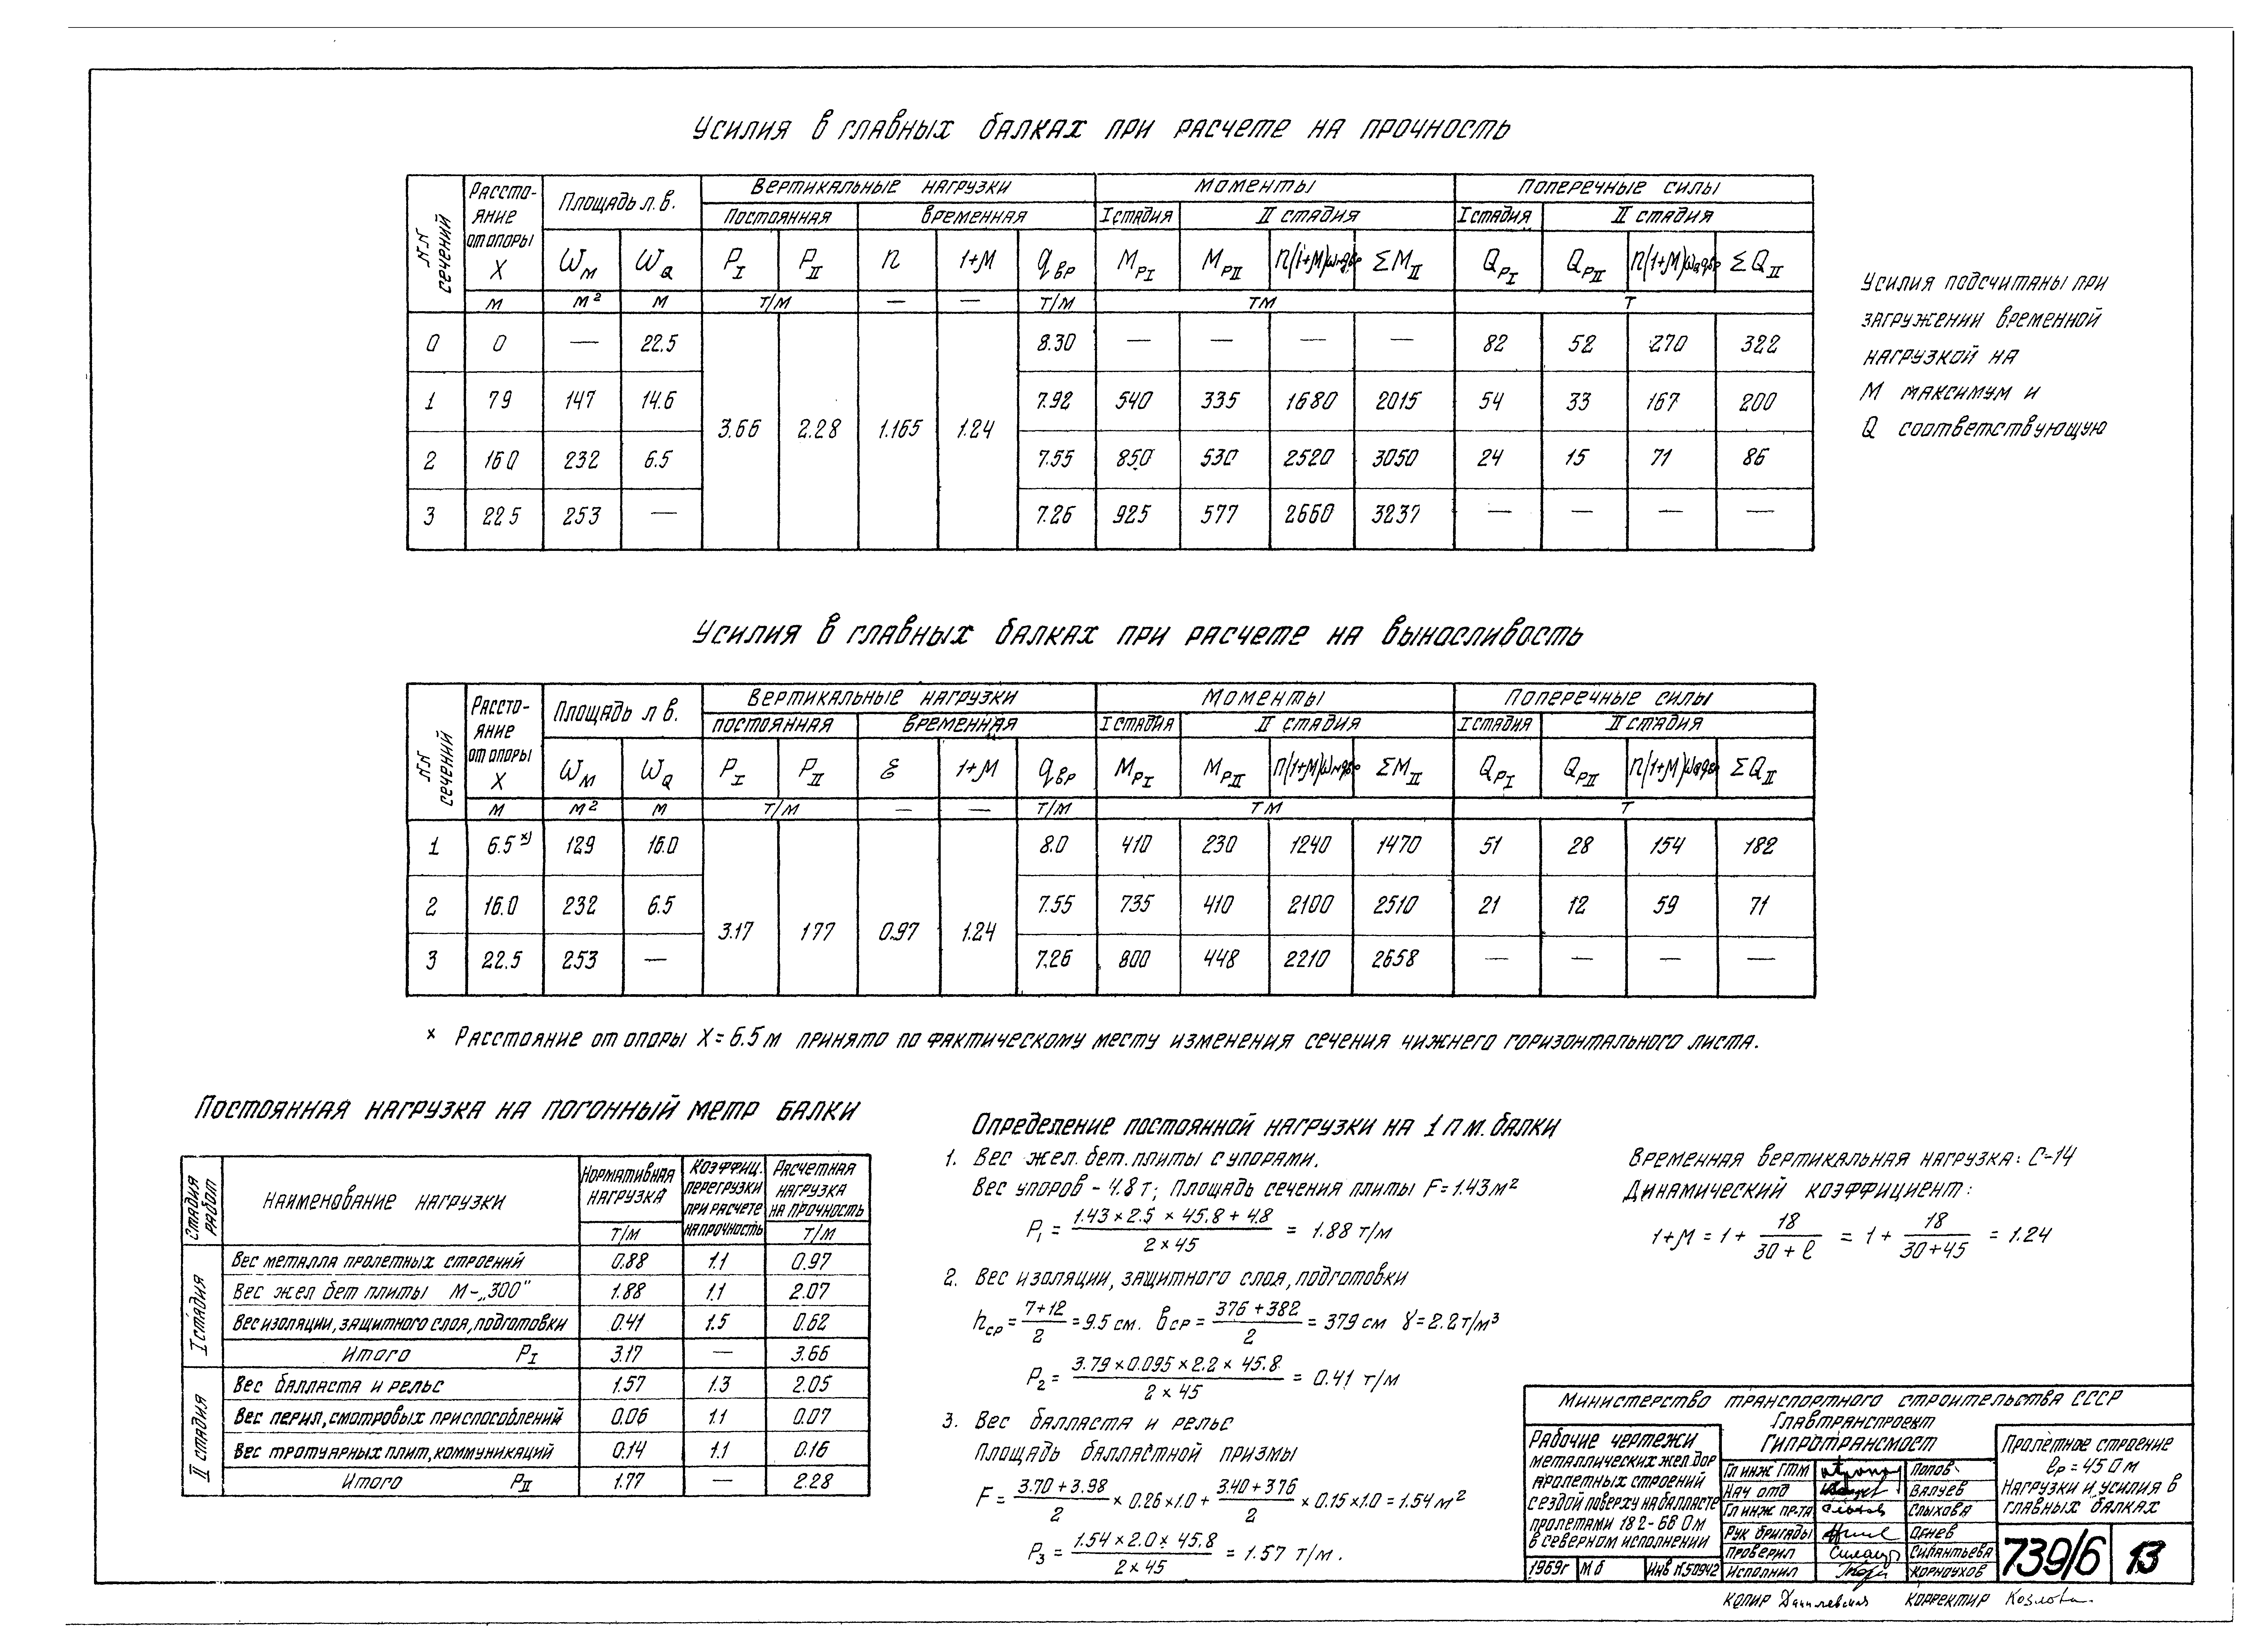 Усилия в главных балках при расчете на прочность
N.N сечений
Рассто-
яние
от опоры
X
Площадь л.в.
Вертикальные нагрузки
Моменты
Поперечные силы
Постоянная
Временная
I стадия
II стадия
I стадия
II стадия
ωм ωQ PI PII n 1+М qвр MPI MPII n(1+М)ωмqвр ΣMII QPI QPII n(1+М)ωQqвр ΣQII
м м² м т/м — — т/м тм т
0 0 — 22.5 8.30 — — — — 82 52 270 322
1 79 147 14.6 7.92 540 335 1680 2015 54 33 167 200
3.66 2.28 1.165 1.24
2 16 0 232 6.5 7.55 850 530 2520 3050 24 15 71 86
3 22 5 253 — 7.26 925 577 2660 3237 — — — —
Усилия подсчитаны при
загружении временной
нагрузкой на
М максимум и
Q соответствующую
Усилия в главных балках при расчете на выносливость
N.N сечений
Рассто-
яние
от опоры
X
Площадь л в.
Вертикальные нагрузки
Моменты
Поперечные силы
постоянная
временная
I стадия
II стадия
I стадия
II стадия
ωм ωQ PI PII ε 1+М qвр MPI MPII n(1+М)ωмqвр ΣMII QPI QPII n(1+М)ωQqвр ΣQII
м м² м т/м — — т/м тм т
1 6.5 х) 129 16.0 8.0 410 230 1240 1470 51 28 154 182
2 16.0 232 6.5 7.55 735 410 2100 2510 21 12 59 71
3.17 1 77 0.97 1.24
3 22.5 253 — 7.26 800 448 2210 2658 — — — —
х Расстояние от опоры X = 6.5 м принято по фактическому месту изменения сечения нижнего горизонтального листа.
Постоянная нагрузка на погонный метр балки
Стадия работ
Наименование нагрузки
Нормативная
нагрузка
т/м
Коэффиц.
перегрузки
при расчете
на прочность
Расчетная
нагрузка
на прочность
т/м
I стадия
Вес металла пролетных строений 0.88 1.1 0.97
Вес жел бет плиты М-„300" 1.88 1.1 2.07
Вес изоляции, защитного слоя, подготовки 0.41 1.5 0.62
Итого PI 3.17 — 3.66
II стадия
Вес балласта и рельс 1.57 1.3 2.05
Вес перил, смотровых приспособлений 0.06 1.1 0.07
Вес тротуарных плит, коммуникаций 0.14 1.1 0.16
Итого PII 1.77 — 2.28
Определение постоянной нагрузки на 1 п м. балки
1. Вес жел. бет. плиты с упорами.
Вес упоров - 4.8 т; Площадь сечения плиты F = 1.43 м²
P₁ = (1.43 × 2.5 × 45.8 + 4.8) / (2 × 45) = 1.88 т/м
2. Вес изоляции, защитного слоя, подготовки
hср = (7+12)/2 = 9.5 см. вср = (376 + 382)/2 = 379 см γ = 2.2 т/м³
P₂ = (3.79 × 0.095 × 2.2 × 45.8) / (2 × 45) = 0.41 т/м
3. Вес балласта и рельс
Площадь балластной призмы
F = (3.70 + 3.98)/2 × 0.26 × 1.0 + (3.40 + 3 76)/2 × 0.15 × 1.0 = 1.54 м²
P₃ = (1.54 × 2.0 × 45.8) / (2 × 45) = 1.57 т/м.
Временная вертикальная нагрузка: С-14
Динамический коэффициент:
1+М = 1 + 18/(30 + ℓ) = 1 + 18/(30+45) = 1.24
Министерство транспортного строительства СССР
Главтранспроект
Гипротрансмост
Рабочие чертежи
металлических жел. дор
пролетных строений
с ездой поверху на балласте
пролетами 18 2-66 0 м
в северном исполнении
1969г М б Инв N 50942
Гл инж ГТМ Попов
Нач отд Валуев
Гл инж пр-та Слыхова
Рук бригады Огнев
Проверил Силантьева
Исполнил Корноухов
Пролетное строение
ℓр = 45 0 м
Нагрузки и усилия в
главных балках
739/6 13
Копир Данилевская Корректир Козлова